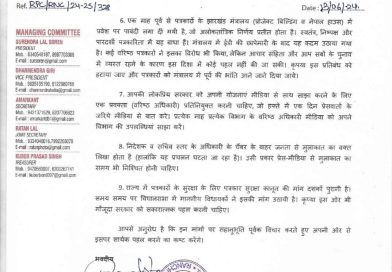 Ref. RPC/RNC/24-25/328
MANAGING COMMITTEE
SURENDRA LAL SOREN
PRESIDENT
DHARMENDRA GIRI
VICE PRESIDENT
AMARKANT
SECRETARY
RATAN LAL
JOINT SECRETARY
KUBER PRASAD SINGH
TREASURER
6. एक माह पूर्व से पत्रकारों के झारखंड मंत्रालय (प्रोजेक्ट बिल्डिंग व नेपाल हाउस) में
प्रवेश पर पाबंदी लगा दी गयी है, जो अलोकतांत्रिक निर्णय प्रतीत होता है। स्वतंत्र, निष्पक्ष और
पारदर्शी पत्रकारिता में यह बाधा है। मंत्रालय में ईडी की छापेमारी के बाद यह कदम उठाया गया
है। कई वरिष्ठ पत्रकारों ने इसका विरोध भी किया, लेकिन आचार संहिता और आप सबों के चुनाव
में व्यस्त रहने के कारण इस दिशा में कोई पहल नहीं की जा सकी। कृपया इस प्रतिबंध को
हटाया जाए और पत्रकारों को मंत्रालय में पूर्व की भांति आने जाने दिया जाये।
7. आपकी लोकप्रिय सरकार को अपनी योजनाएं मीडिया से साथ साझा करने के लिए
एक प्रवक्ता (वरिष्ठ अधिकारी) प्रतिनियुक्त करनी चाहिए, जो हफ्ते में एक दिन प्रेसवार्ता के
जरिये मीडिया से बात करे। प्रत्येक माह प्रत्येक विभाग के वरिष्ठ अधिकारी मीडिया को अपने
विभाग की उपलब्धियां साझा करें।
8. निदेशक व सचिव स्तर के अधिकारी के चैंबर के बाहर जनता से मुलाकात का वक्त
लिखा होता है (हालांकि यह प्रचलन घटता जा रहा है)। उसी प्रकार प्रेस-मीडिया से मुलाकात का
समय भी निश्चित होनी चाहिए।
9. राज्य में पत्रकारों के सुरक्षा के लिए पत्रकार सुरक्षा कानून की मांग दशकों पुरानी है।
समय समय पर विधानसभा में माननीय विधायकों ने इसकी मांग उठायी है। कृपया इस ओर भी
मौजूदा सरकार को सकारात्मक पहल करनी चाहिए।
आपसे अनुरोध है कि इन मांगों पर सहानुभूति पूर्वक विचार करते हुए अपनी ओर से
इसपर सार्थक पहल करने का कष्ट करेंगे।
भवदीय